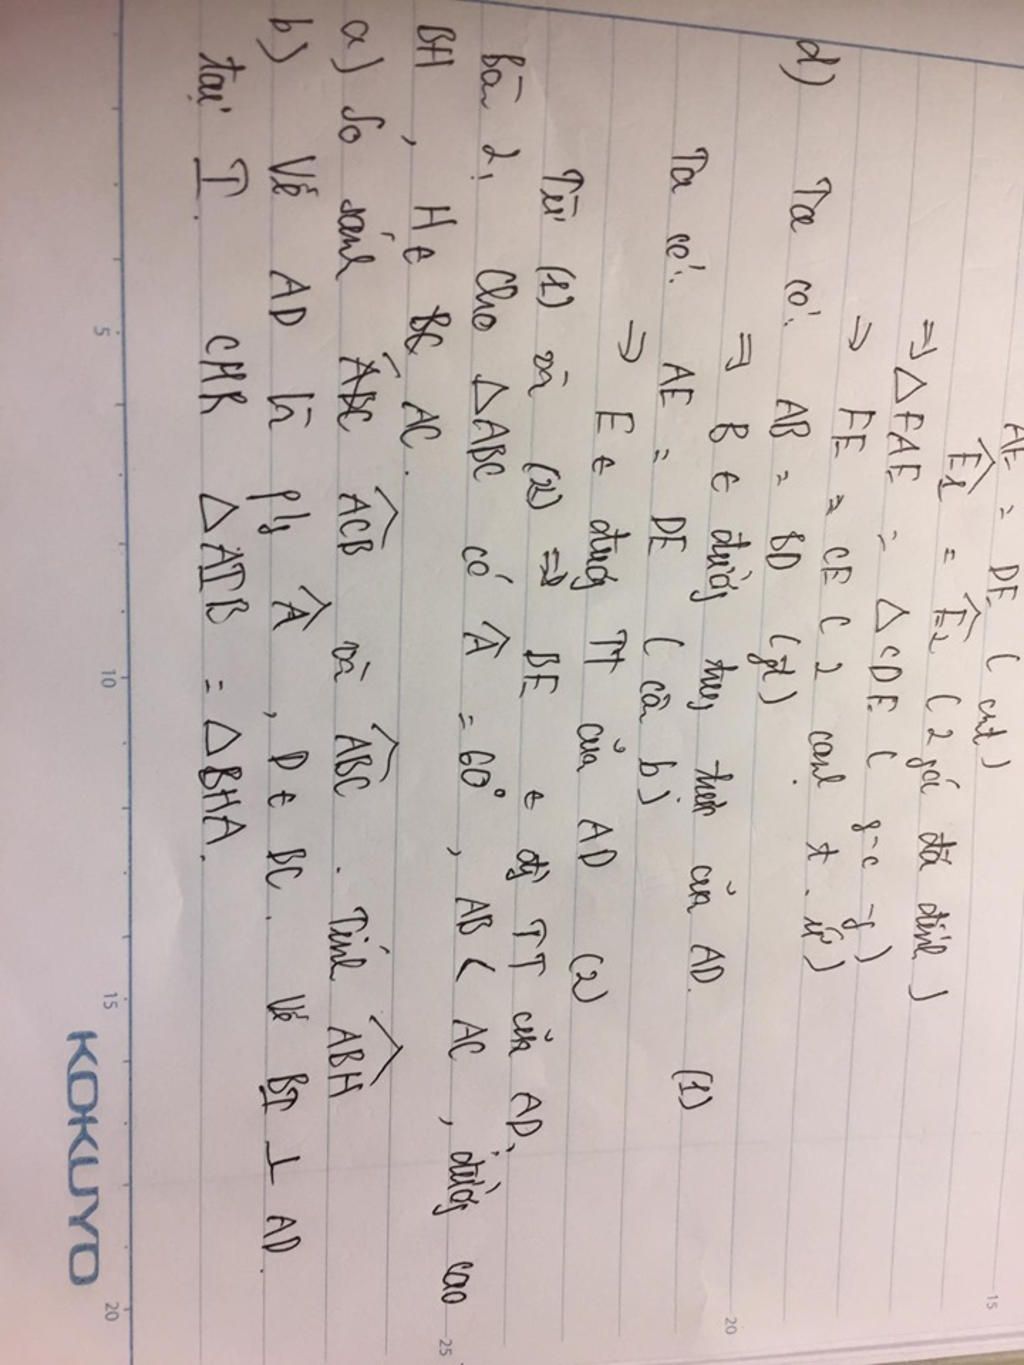 AE = DE ( cmt )
Ê1 = Ê2 ( 2 góc đối đỉnh )
⇒ △FAE = △CDE ( g-c-g )
⇒ FE = CE ( 2 cạnh t.ứ )
d) Ta có: AB = BD (gt)
⇒ B ∈ đường trung trực của AD. (1)
Ta có: AE = DE ( câu b )
⇒ E ∈ đường TT của AD (2)
Từ (1) và (2) ⇒ BE ∈ đg TT của AD.
Bài 2, Cho △ABC có Â = 60°, AB < AC, đường cao
BH, H ∈ AC.
a) So sánh ACB và ABC. Tính ABH
b) Vẽ AD là p/g Â, D ∈ BC. Vẽ BI ⊥ AD.
tại I. CMR △AIB = △BHA.
KOKUYO
5
10
15
20
15
20
25